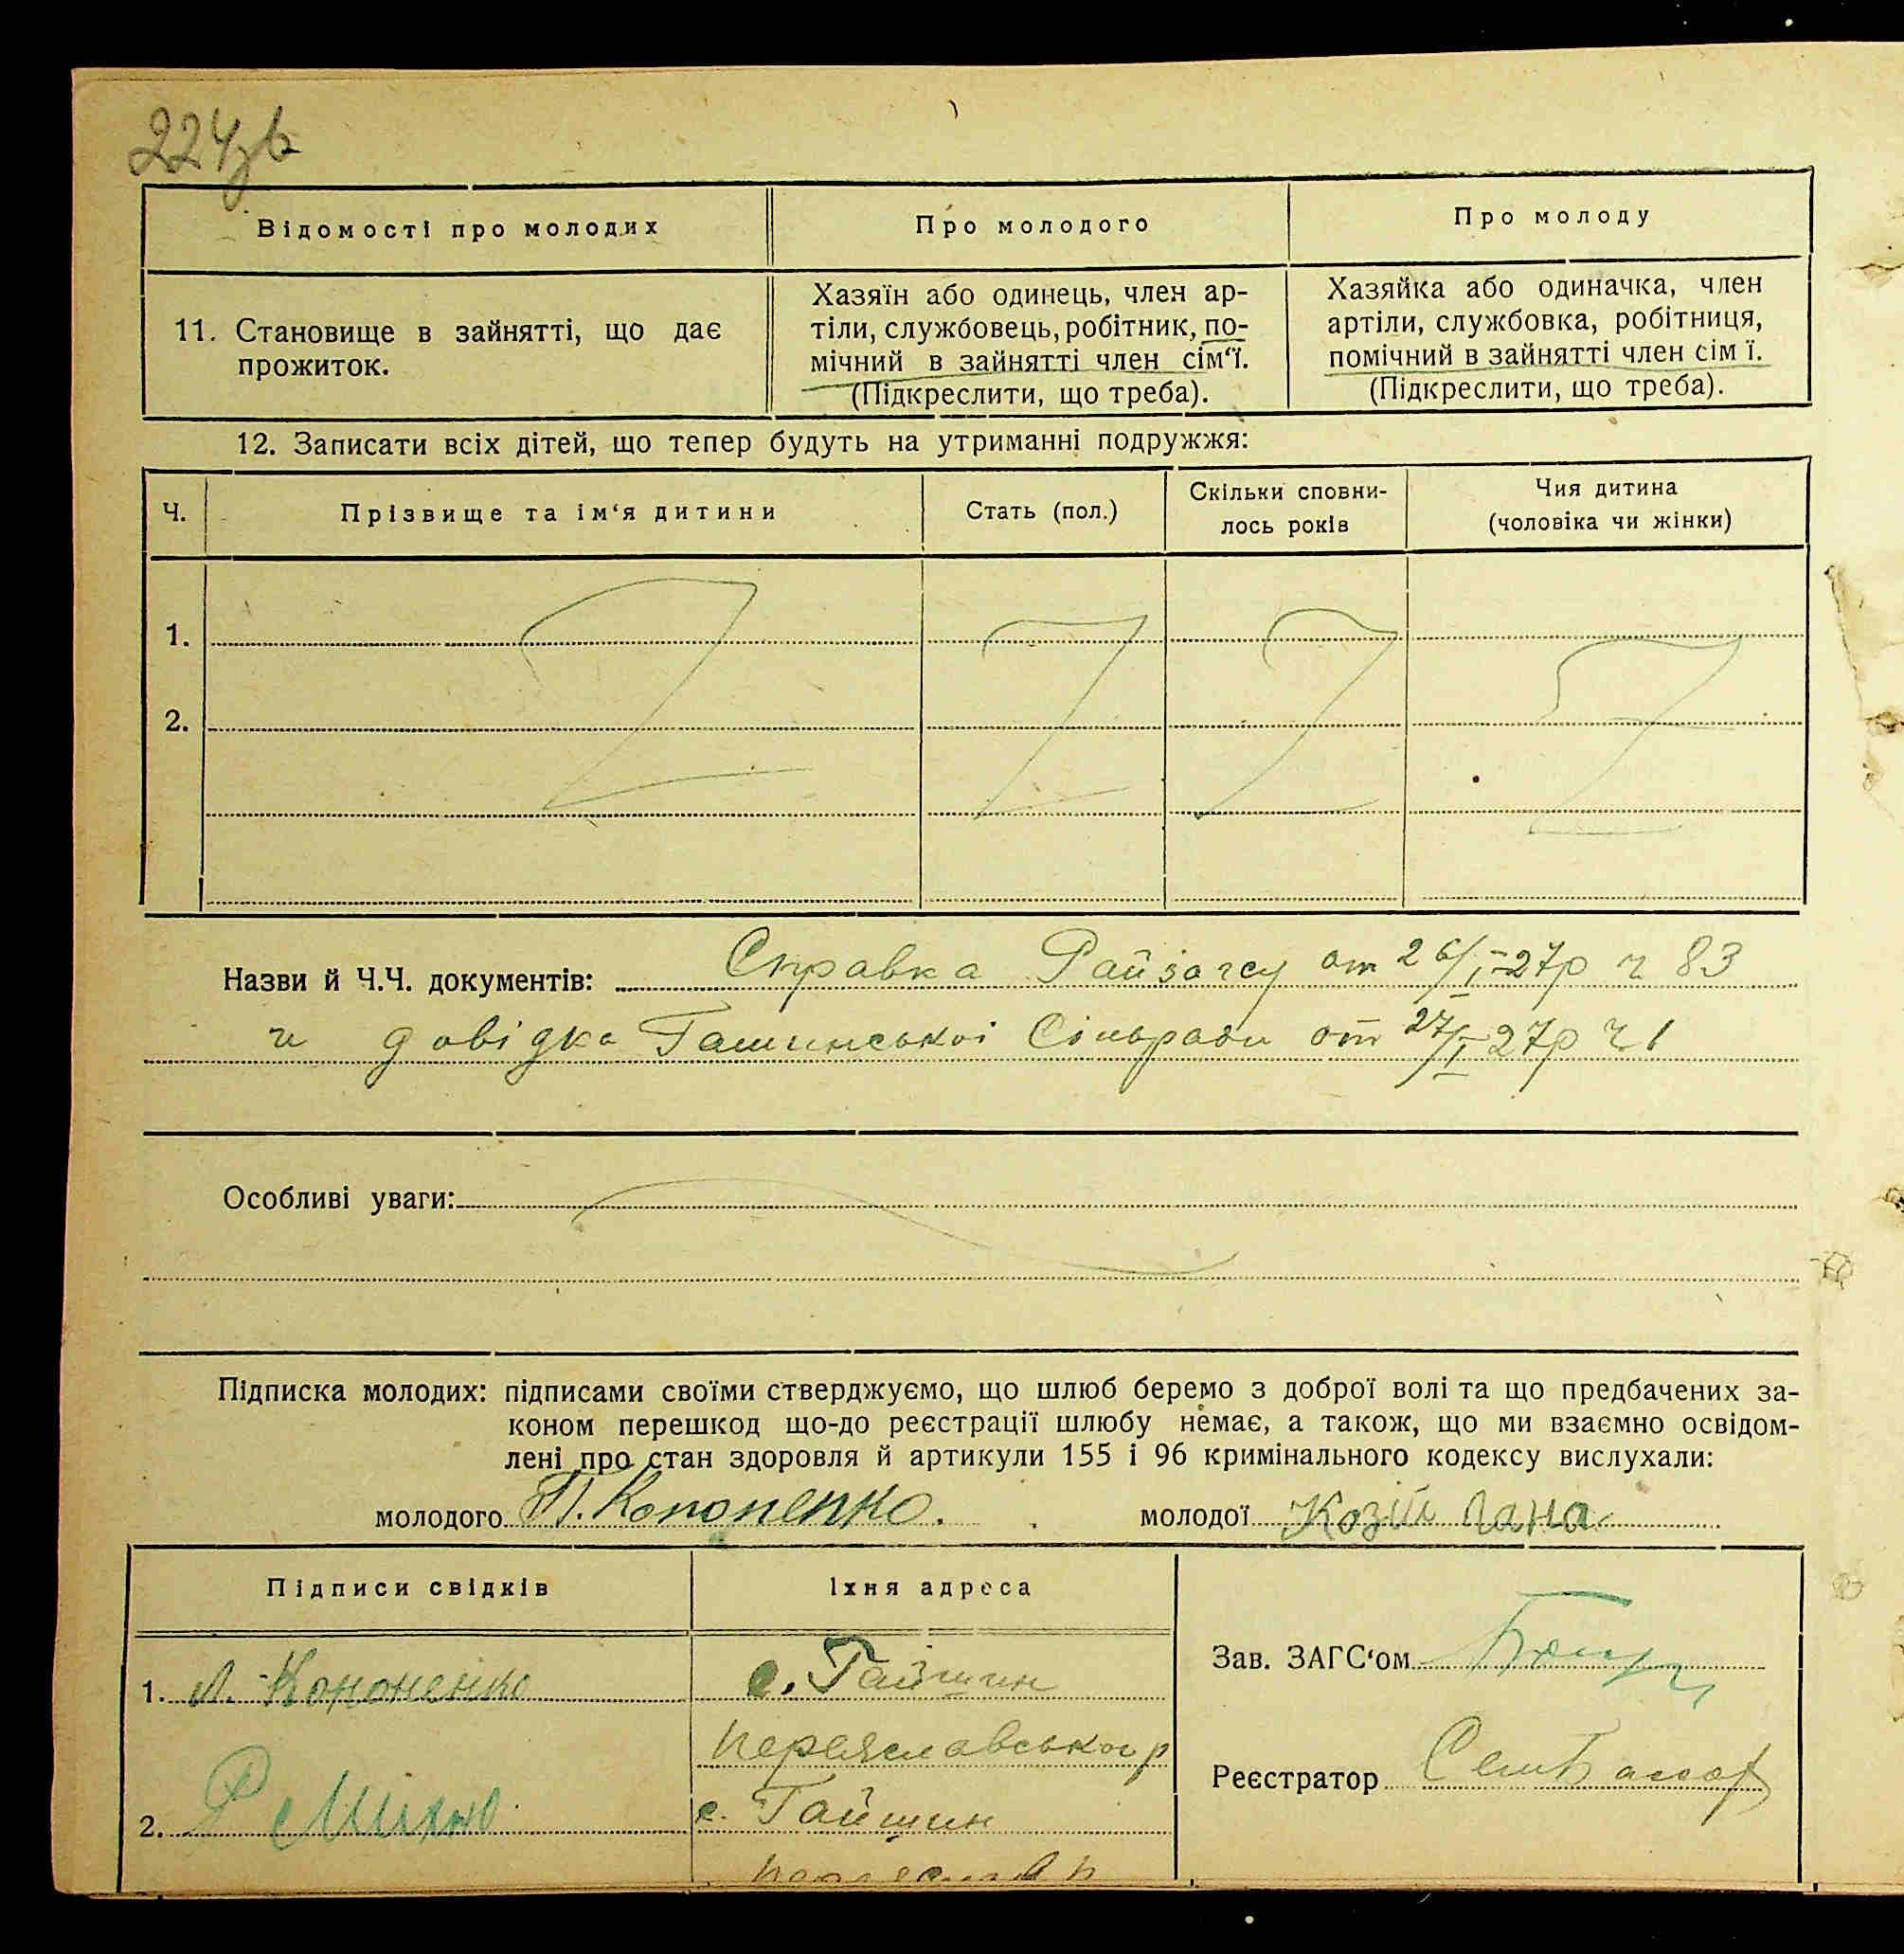 224зв
Відомості про молодих
Про молодого
Про молоду
11. Становище в зайнятті, що дає
прожиток.
Хазяїн або одинець, член ар-
тіли, службовець, робітник, по-
мічний в зайнятті член сім‘ї.
(Підкреслити, що треба).
Хазяйка або одиначка, член
артіли, службовка, робітниця,
помічний в зайнятті член сім ї.
(Підкреслити, що треба).
12. Записати всіх дітей, що тепер будуть на утриманні подружжя:
Ч.
Прізвище та ім‘я дитини
Стать (пол.)
Скільки сповни-
лось років
Чия дитина
(чоловіка чи жінки)
1.
2.
Назви й Ч.Ч. документів: Справка Райзагсу от 26/I-27р ч 83
и довідка Гашинської Сільради от 27/I-27р ч 1
Особливі уваги:
Підписка молодих: підписами своїми стверджуємо, що шлюб беремо з доброї волі та що предбачених за-
коном перешкод що-до реєстрації шлюбу немає, а також, що ми взаємно освідом-
лені про стан здоровля й артикули 155 і 96 кримінального кодексу вислухали:
молодого П. Кононенко. молодої Козій Гана
Підписи свідків
Їхня адреса
1. Л. Кононенко
с. Гайшин
Переяславського р
2.
с. Гайшин
Зав. ЗАГС‘ом
Реєстратор